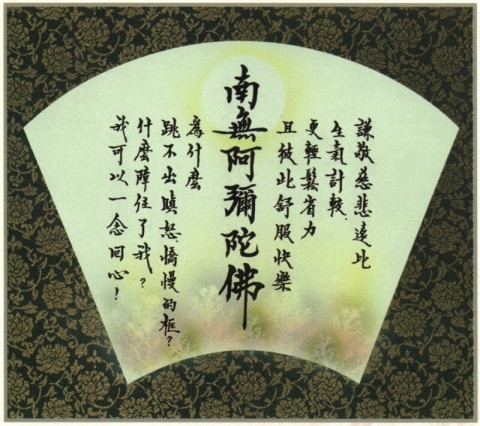 謙敬慈悲遠比
生氣計較、
更輕鬆省力
且彼此舒服快樂
南無阿彌陀佛
為什麼
跳不出瞋怒憍慢的框?
什麼障住了我?
我可以一念回心!